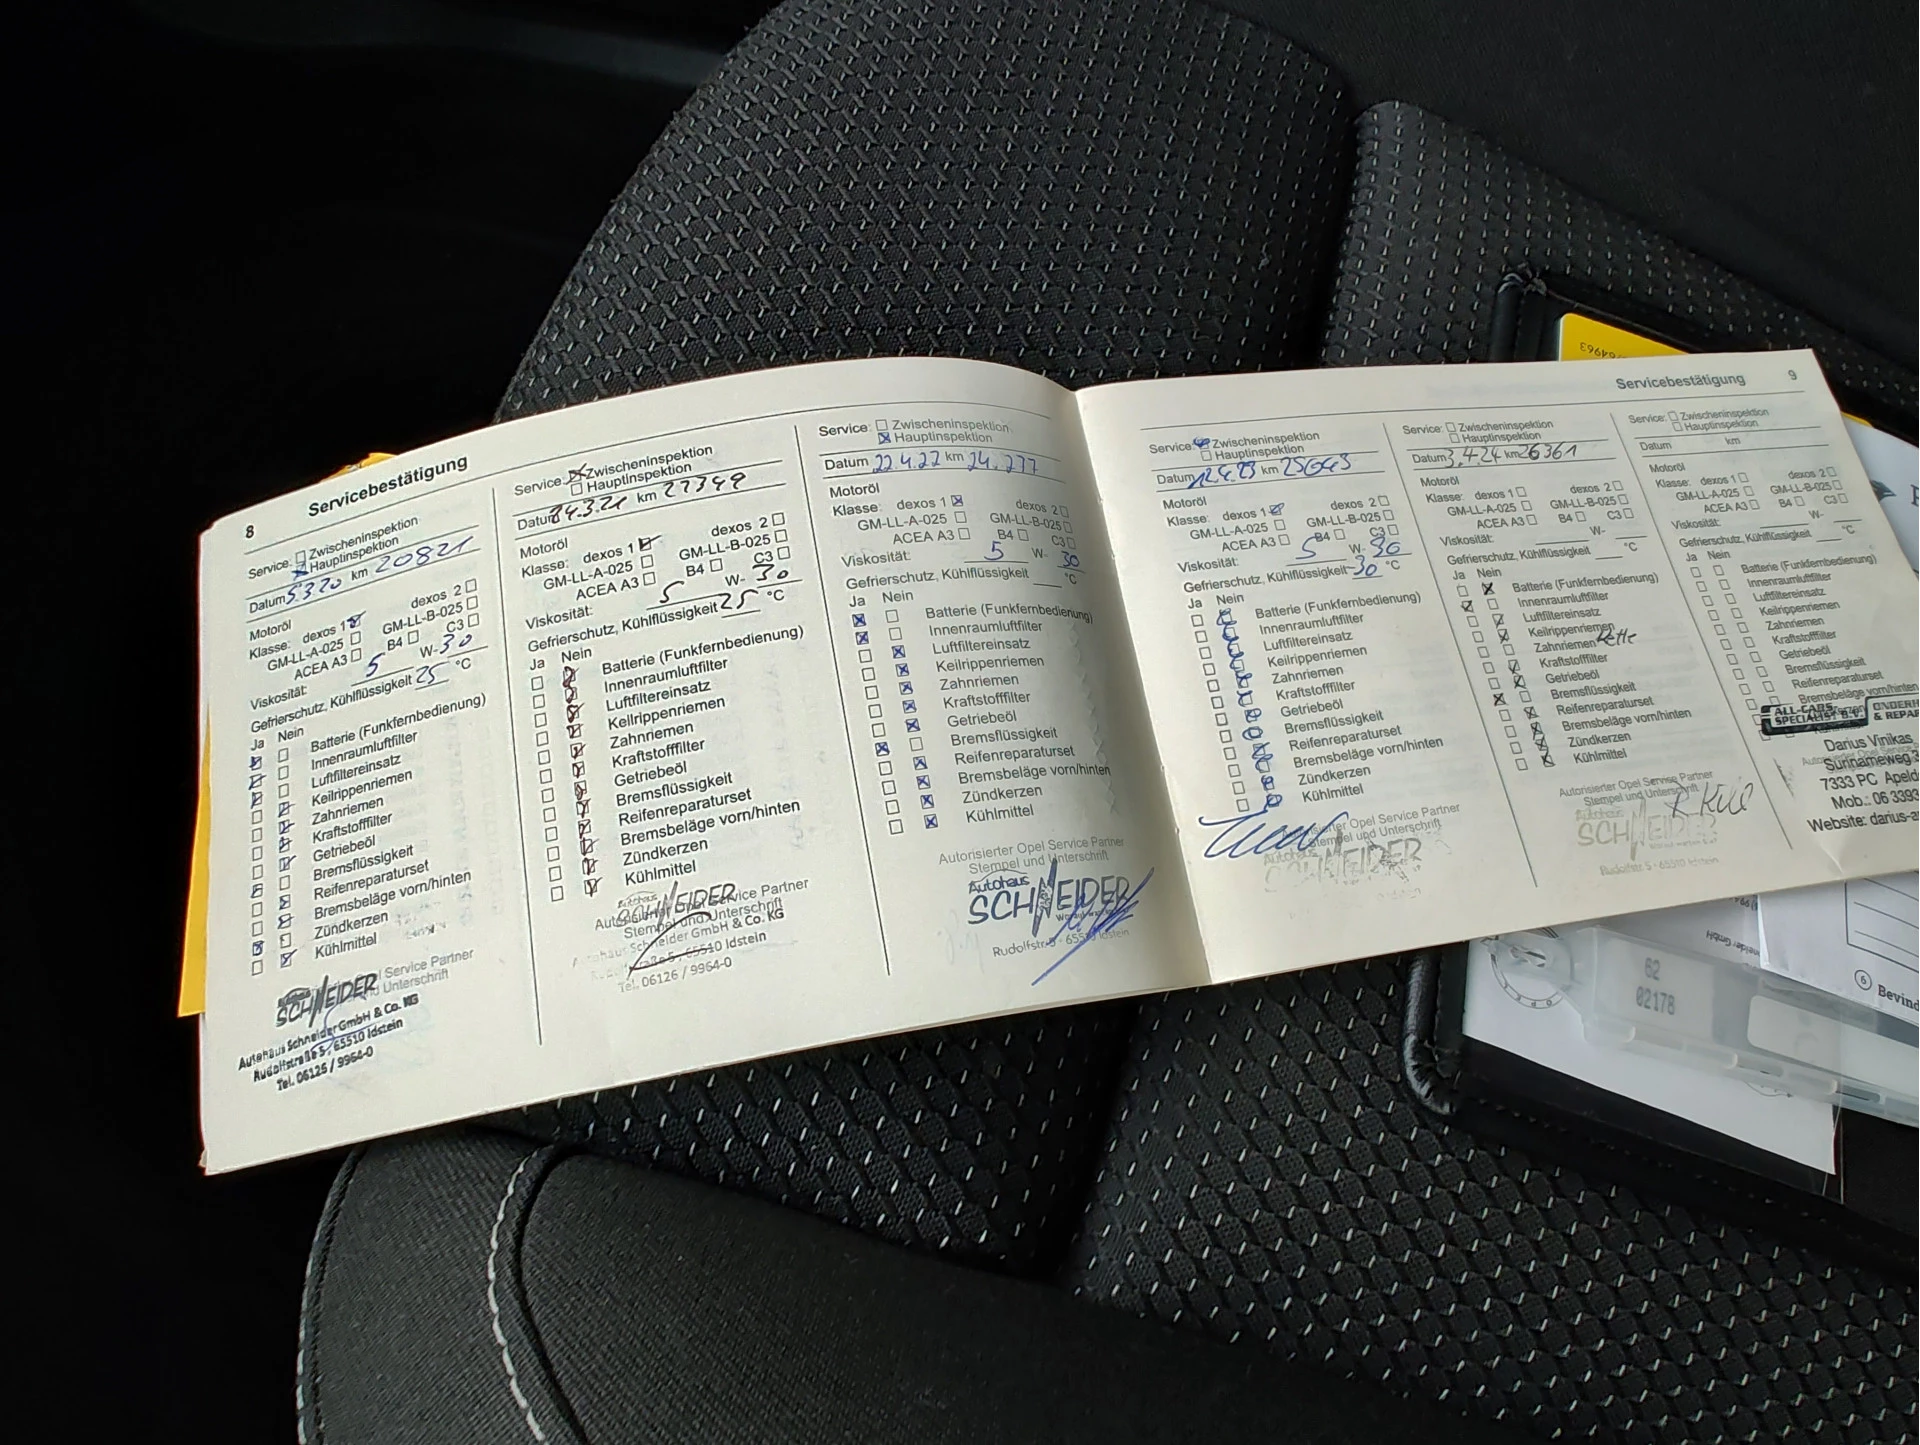 8 Servicebestätigung
Service: Zwischeninspektion
Hauptinspektion
Datum 5.3.20 km 20821
Motoröl
Klasse: dexos 1 dexos 2
GM-LL-A-025 GM-LL-B-025
ACEA A3 B4 C3
Viskosität: 5 W-30
Gefrierschutz, Kühlflüssigkeit 25 °C
Ja Nein
Batterie (Funkfernbedienung)
Innenraumluftfilter
Luftfiltereinsatz
Keilrippenriemen
Zahnriemen
Kraftstofffilter
Getriebeöl
Bremsflüssigkeit
Reifenreparaturset
Bremsbeläge vorn/hinten
Zündkerzen
Kühlmittel
Service Partner
Unterschrift
Autohaus
SCHNEIDER
Autohaus Schneider GmbH & Co. KG
Rudolfstraße 5, 65510 Idstein
Tel. 06126 / 9964-0
Service: Zwischeninspektion
Hauptinspektion
Datum 3.21 km
Motoröl
Klasse: dexos 1 dexos 2
GM-LL-A-025 GM-LL-B-025
ACEA A3 B4 C3
Viskosität: 5 W-30
Gefrierschutz, Kühlflüssigkeit 25 °C
Ja Nein
Batterie (Funkfernbedienung)
Innenraumluftfilter
Luftfiltereinsatz
Keilrippenriemen
Zahnriemen
Kraftstofffilter
Getriebeöl
Bremsflüssigkeit
Reifenreparaturset
Bremsbeläge vorn/hinten
Zündkerzen
Kühlmittel
Service Partner
Stempel und Unterschrift
SCHNEIDER
Autohaus Schneider GmbH & Co. KG
Rudolfstraße 5, 65510 Idstein
Tel. 06126 / 9964-0
Service: Zwischeninspektion
Hauptinspektion
Datum 22.4.22 km 24.277
Motoröl
Klasse: dexos 1 dexos 2
GM-LL-A-025 GM-LL-B-025
ACEA A3 B4 C3
Viskosität: 5 W- 30
Gefrierschutz, Kühlflüssigkeit °C
Ja Nein
Batterie (Funkfernbedienung)
Innenraumluftfilter
Luftfiltereinsatz
Keilrippenriemen
Zahnriemen
Kraftstofffilter
Getriebeöl
Bremsflüssigkeit
Reifenreparaturset
Bremsbeläge vorn/hinten
Zündkerzen
Kühlmittel
Autorisierter Opel Service Partner
Stempel und Unterschrift
Autohaus
SCHNEIDER
Rudolfstr. 5 - 65510 Idstein
Servicebestätigung 9
Service: Zwischeninspektion
Hauptinspektion
Datum 12.4.23 km 25643
Motoröl
Klasse: dexos 1 dexos 2
GM-LL-A-025 GM-LL-B-025
ACEA A3 B4 C3
Viskosität: 5 W- 30
Gefrierschutz, Kühlflüssigkeit -30 °C
Ja Nein
Batterie (Funkfernbedienung)
Innenraumluftfilter
Luftfiltereinsatz
Keilrippenriemen
Zahnriemen
Kraftstofffilter
Getriebeöl
Bremsflüssigkeit
Reifenreparaturset
Bremsbeläge vorn/hinten
Zündkerzen
Kühlmittel
Autorisierter Opel Service Partner
Stempel und Unterschrift
Autohaus
SCHNEIDER
Service: Zwischeninspektion
Hauptinspektion
Datum 3.4.24 km 26361
Motoröl
Klasse: dexos 1 dexos 2
GM-LL-A-025 GM-LL-B-025
ACEA A3 B4 C3
Viskosität: W-
Gefrierschutz, Kühlflüssigkeit °C
Ja Nein
Batterie (Funkfernbedienung)
Innenraumluftfilter
Luftfiltereinsatz
Keilrippenriemen
Zahnriemen Kette
Kraftstofffilter
Getriebeöl
Bremsflüssigkeit
Reifenreparaturset
Bremsbeläge vorn/hinten
Zündkerzen
Kühlmittel
Autorisierter Opel Service Partner
Stempel und Unterschrift
SCHNEIDER
Rudolfstr. 5 - 65510 Idstein
Service: Zwischeninspektion
Hauptinspektion
Datum km
Motoröl
Klasse: dexos 1 dexos 2
GM-LL-A-025 GM-LL-B-025
ACEA A3 B4 C3
Viskosität: W-
Gefrierschutz, Kühlflüssigkeit °C
Ja Nein
Batterie (Funkfernbedienung)
Innenraumluftfilter
Luftfiltereinsatz
Keilrippenriemen
Zahnriemen
Kraftstofffilter
Getriebeöl
Bremsflüssigkeit
Reifenreparaturset
Bremsbeläge vorn/hinten
ALL-CARS
SPECIALIST B.V.
& REPA
Darius Vinikas
Surinameweg 3
7333 PC Apeld
Mob.: 06 3393
Website: darius-a
62
02178
6 Bevind